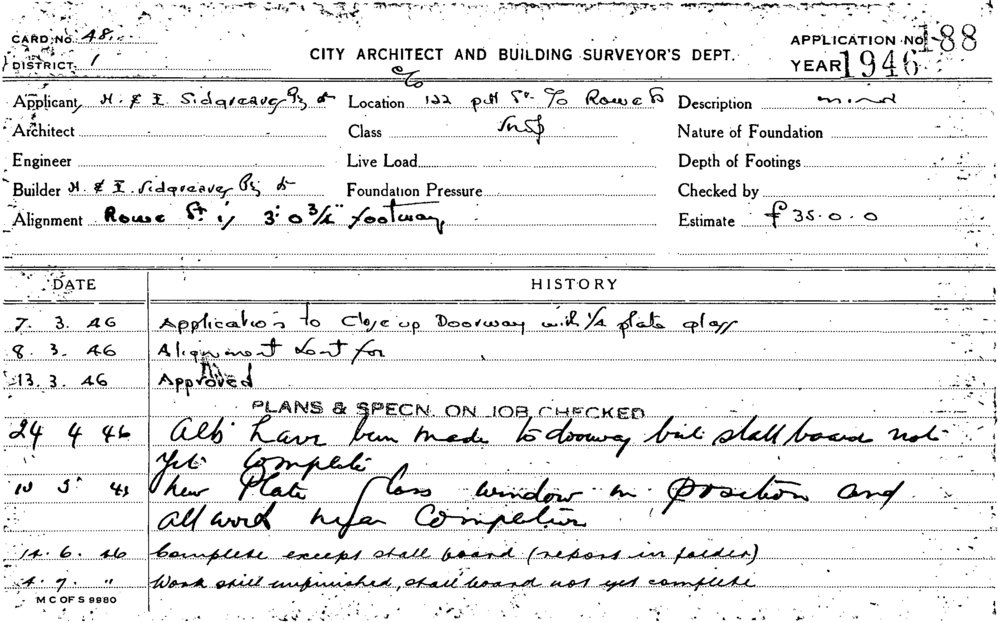 CARD No. 48.
DISTRICT. 1
CITY ARCHITECT AND BUILDING SURVEYOR'S DEPT.
APPLICATION No. 188
YEAR 1946
Applicant H. & E. Sidgreaves Pty Lt Location c/o 122 Pitt St. c/o Rowe St Description minor
Architect Class Insp Nature of Foundation
Engineer Live Load Depth of Footings
Builder H. & E. Sidgreaves Pty Lt Foundation Pressure Checked by
Alignment Rowe St. is 3' 0 3/4" footway Estimate £35.0.0
DATE HISTORY
7. 3. 46 Application to Close up Doorway with 1/4 plate glass
8. 3. 46 Alignment sent for
13. 3. 46 Approved
PLANS & SPECN. ON JOB CHECKED
24 4 46 Alts have been made to doorway but stall board not
yet complete
10 5 New Plate Glass window in position and
all work near Completion
14. 6. 46 Complete except stall board (report in folder)
4. 7. " Work still unfinished, stall board not yet complete
M C OF S 9980